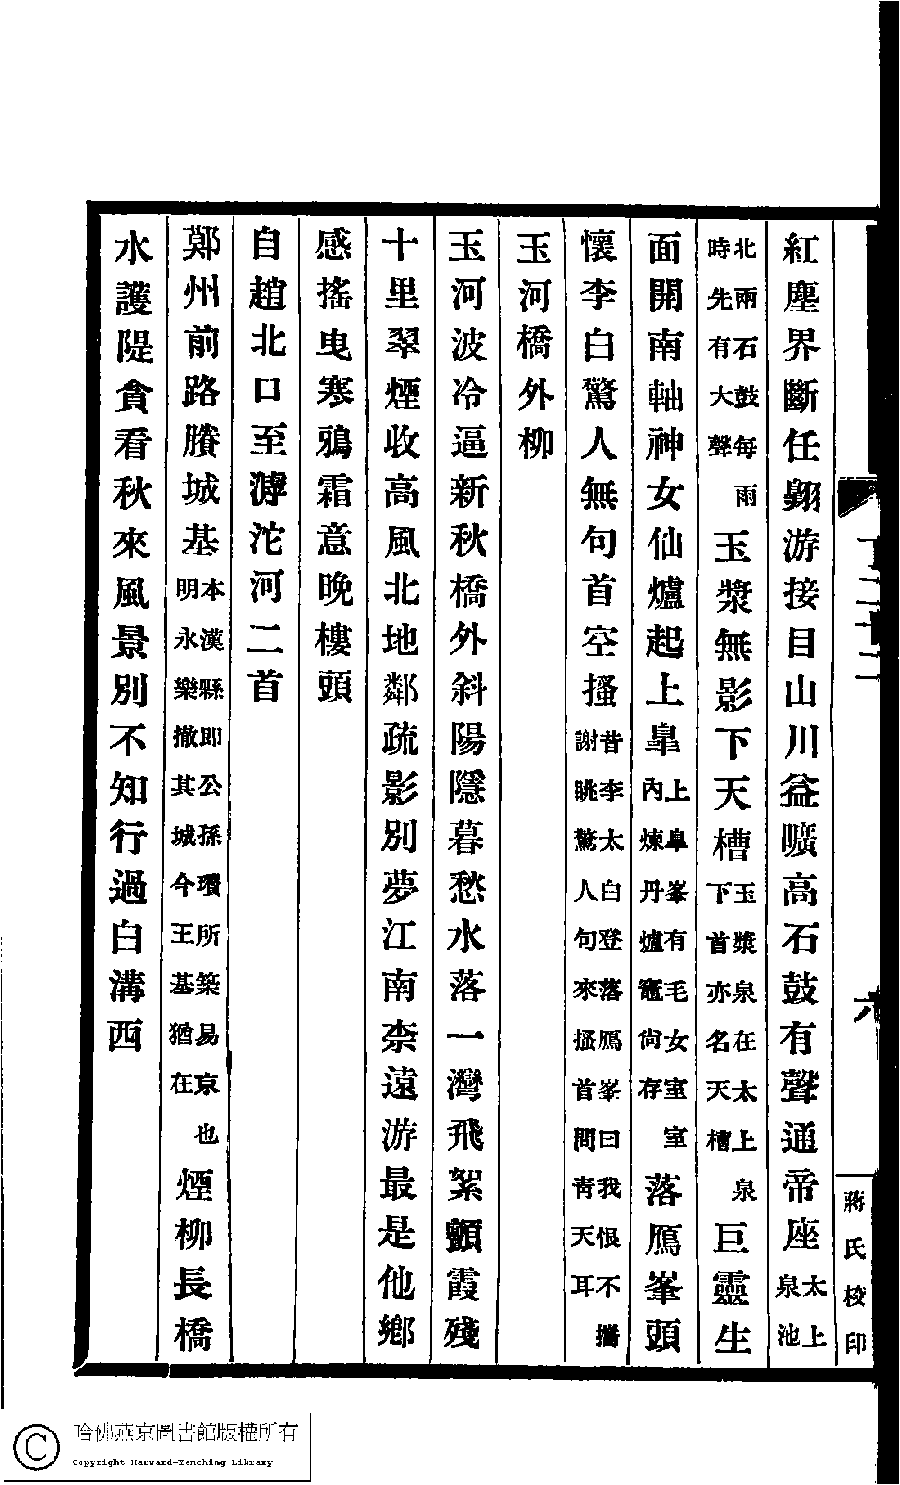 蔣氏校印
六
紅塵界斷任翱游接目山川益曠高石鼓有聲通帝座太上泉池
北兩石鼓每雨時先有大聲玉漿無影下天槽玉漿泉在太上泉下首亦名天槽巨靈生
面開南軸神女仙爐起上臯上臯峯有毛女室室內煉丹爐竈尚存落鴈峯頭
懷李白驚人無句首空搔昔李太白登落鴈峯曰我恨不攜謝眺驚人句來搔首問靑天耳
玉河橋外柳
玉河波冷逼新秋橋外斜陽隱暮愁水落一灣飛絮顫霞殘
十里翠煙收高風北地鄰疏影別夢江南柰遠游最是他鄉
感搖曳寒鴉霜意晚樓頭
自趙北口至滹沱河二首
鄭州前路賸城基本漢縣即公孫瓚所築易京也明永樂撤其城今王基猶在煙柳長橋
水護隄貪看秋來風景別不知行過白溝西
哈佛燕京圖書館版權所有
Copyright Harvard-Yenching Library